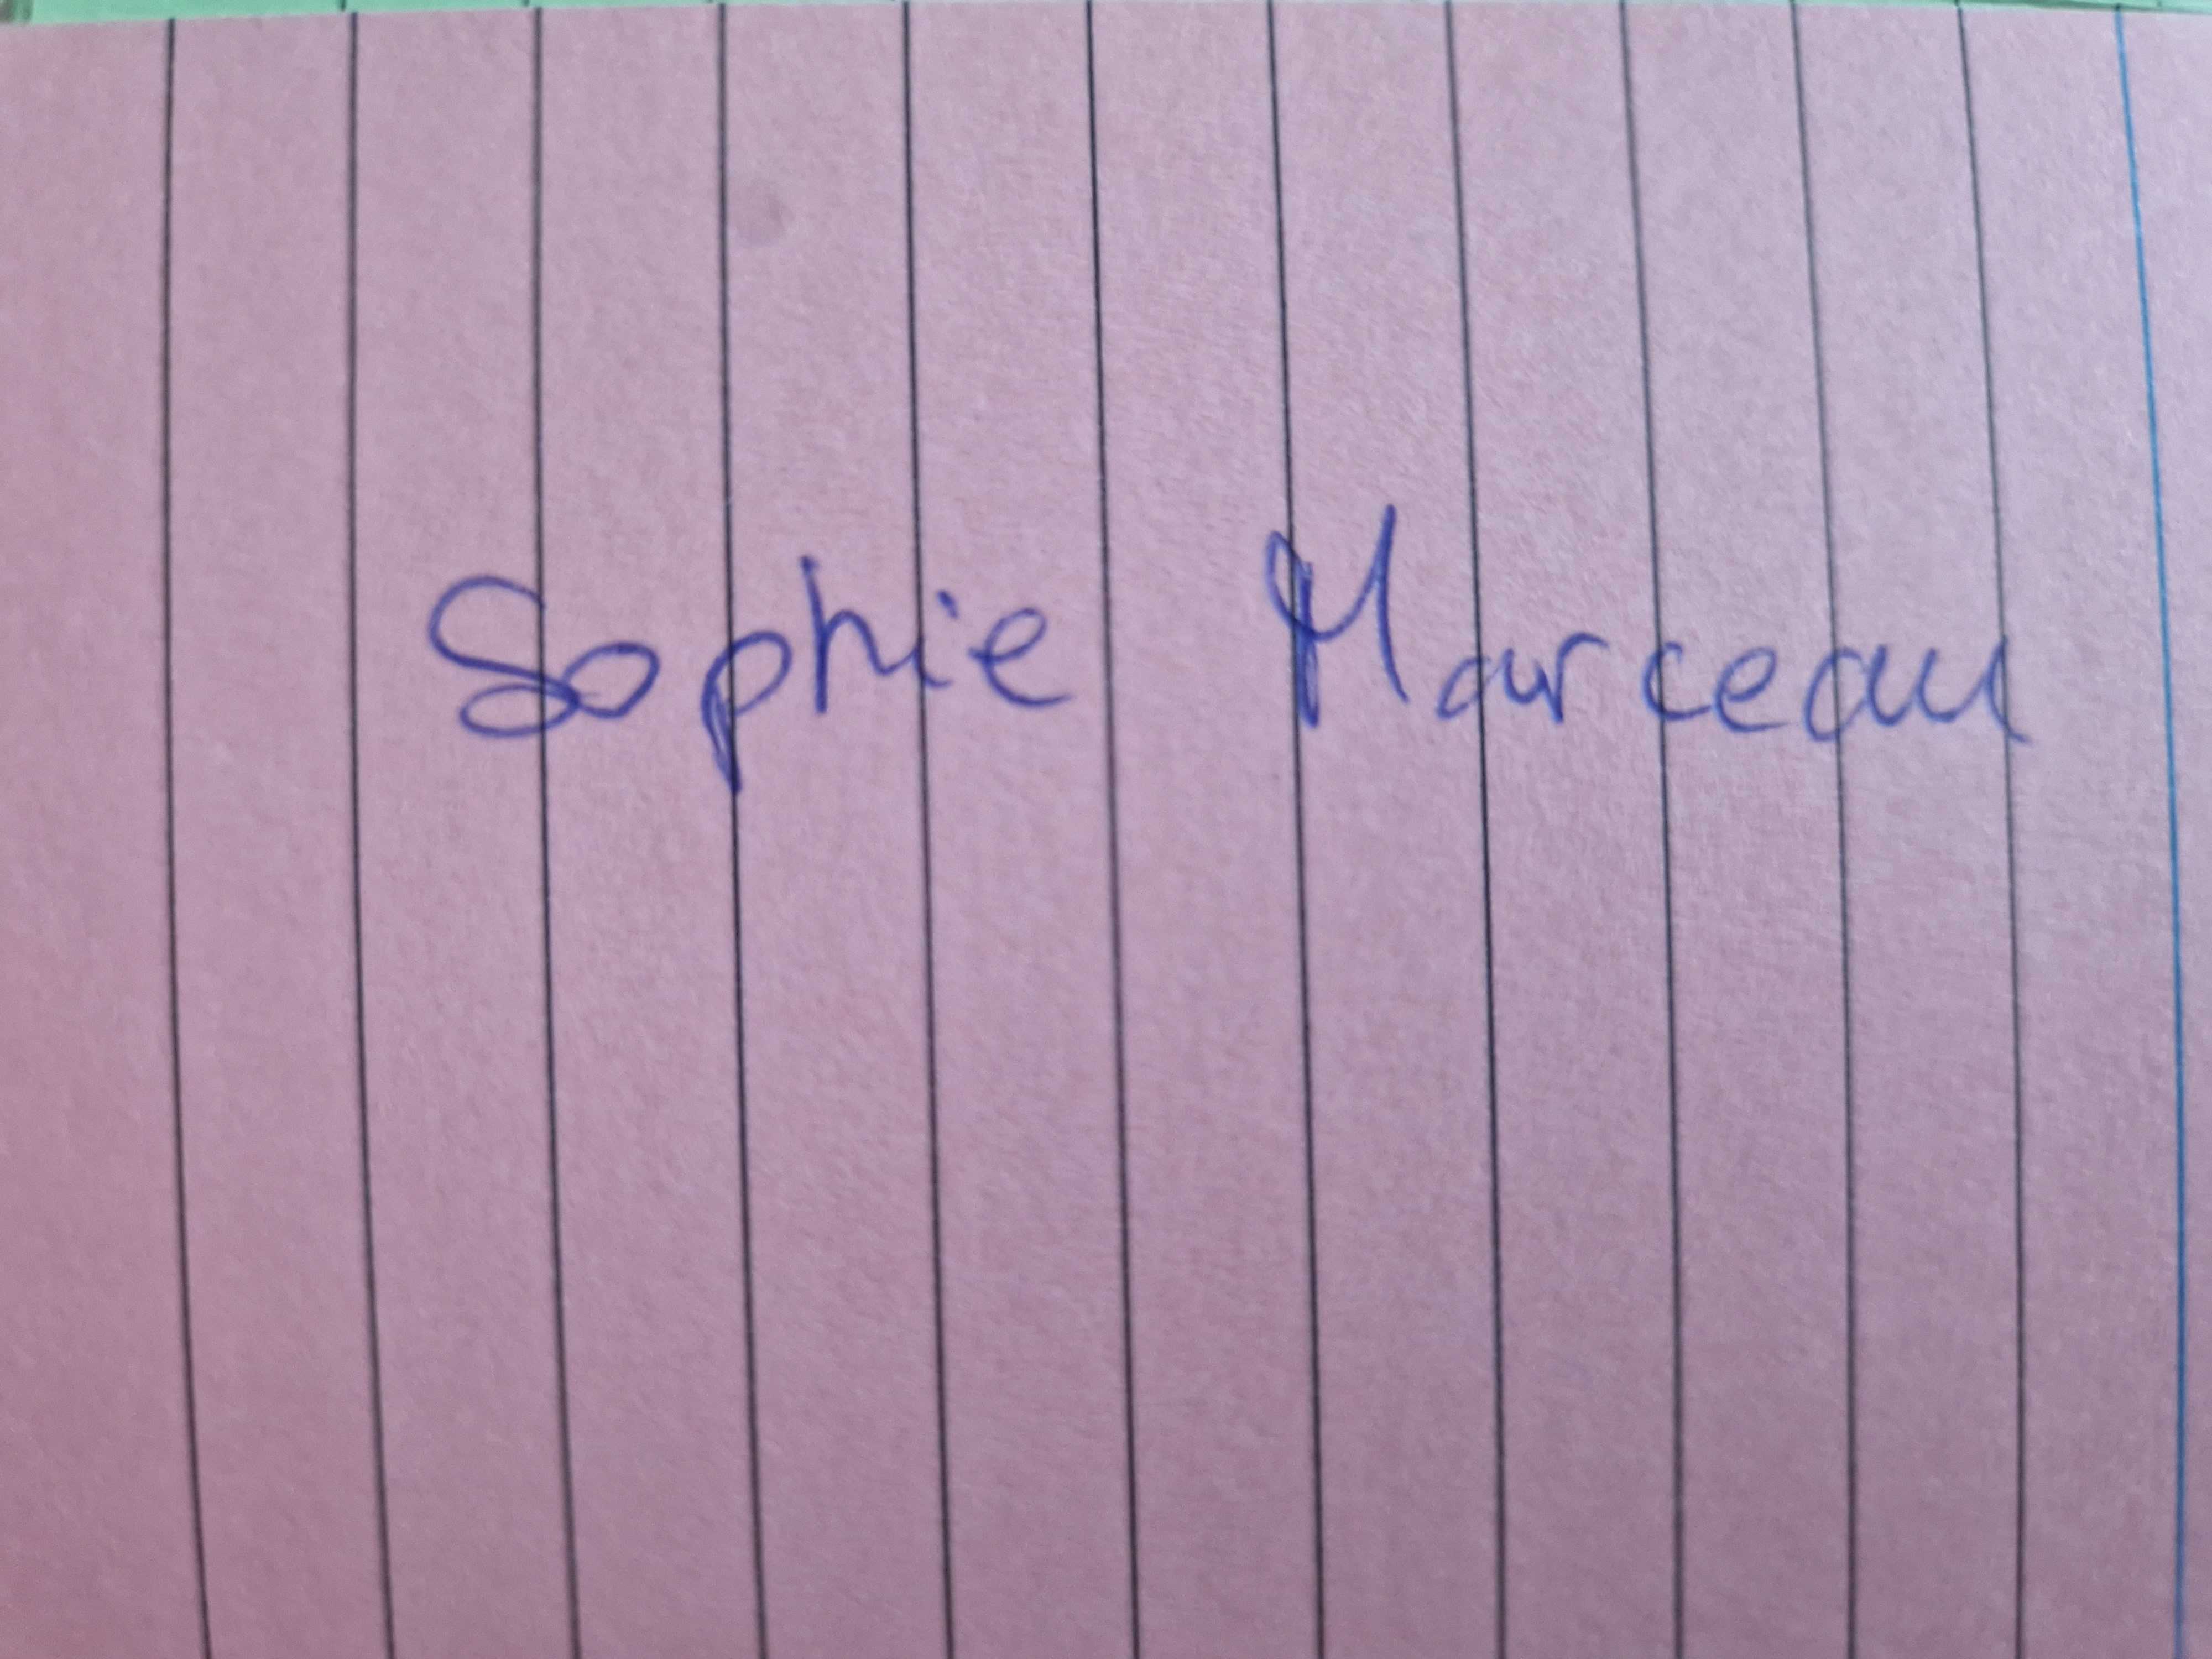 Sophie Marceau